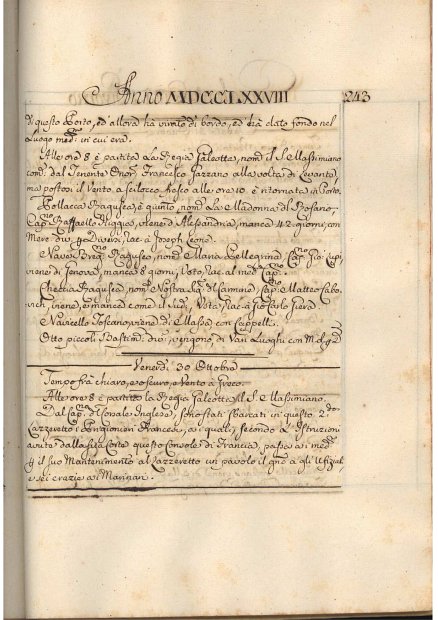 Anno MDCCLXXVIII 243
di questo Porto, ed allora ha virato di bordo, ed hà dato fondo nel
Luogo med.º in cui era.
Alle ore 8 è partita La Regia Galeotta, nom. il S. Massimiano
com. dal Tenente Onor. Francesco Gazzano alla volta di Levante,
ma postosi il Vento a Scilocco fresco alle ore 10 è ritornata in Porto.
Pollacca Ragusea, è giunto, nom. La Madonna del Rosario
Cap.no Raffaello viene d'Alessandria, manca 42 giorni, con
Merc. div. 4 Diversi, rac. a Joseph Leone.
Nave Ragusea, nom. Maria Pellegrina, Cap.no Gio.
viene di Genova, manca 8 giorni, Vota, rac. al med. Cap.no
Chettia Ragusea, nom. Nostra Sig. del Carmine, Cap.no Matteo
viene, e manca come il Sud., Vota, rac. a Gio Carlo
Navicello Toscano, viene di Massa con Cappelli.
Otto piccoli Bastim. div. vengono, di Varj Luoghi con M. d. q.
Venerdì 30 Ottobre
Tempo frà chiaro, e oscuro, e Vento a Greco.
Alle ore 8 è partita la Regia Galeotta il S. Massimiano.
Dal Cap.no Corsale Inglese, sono stati sbarcati in questo 2.do
Lazzeretto i Prigionieri Francesi, a i quali, secondo L'Istruzioni
avute dalla sua Corte questo Console di Francia, passa a i med.
p il suo Mantenimento al Lazzeretto un pavolo il gno a gli Ufizial,
e sei crazie a i Marinari.